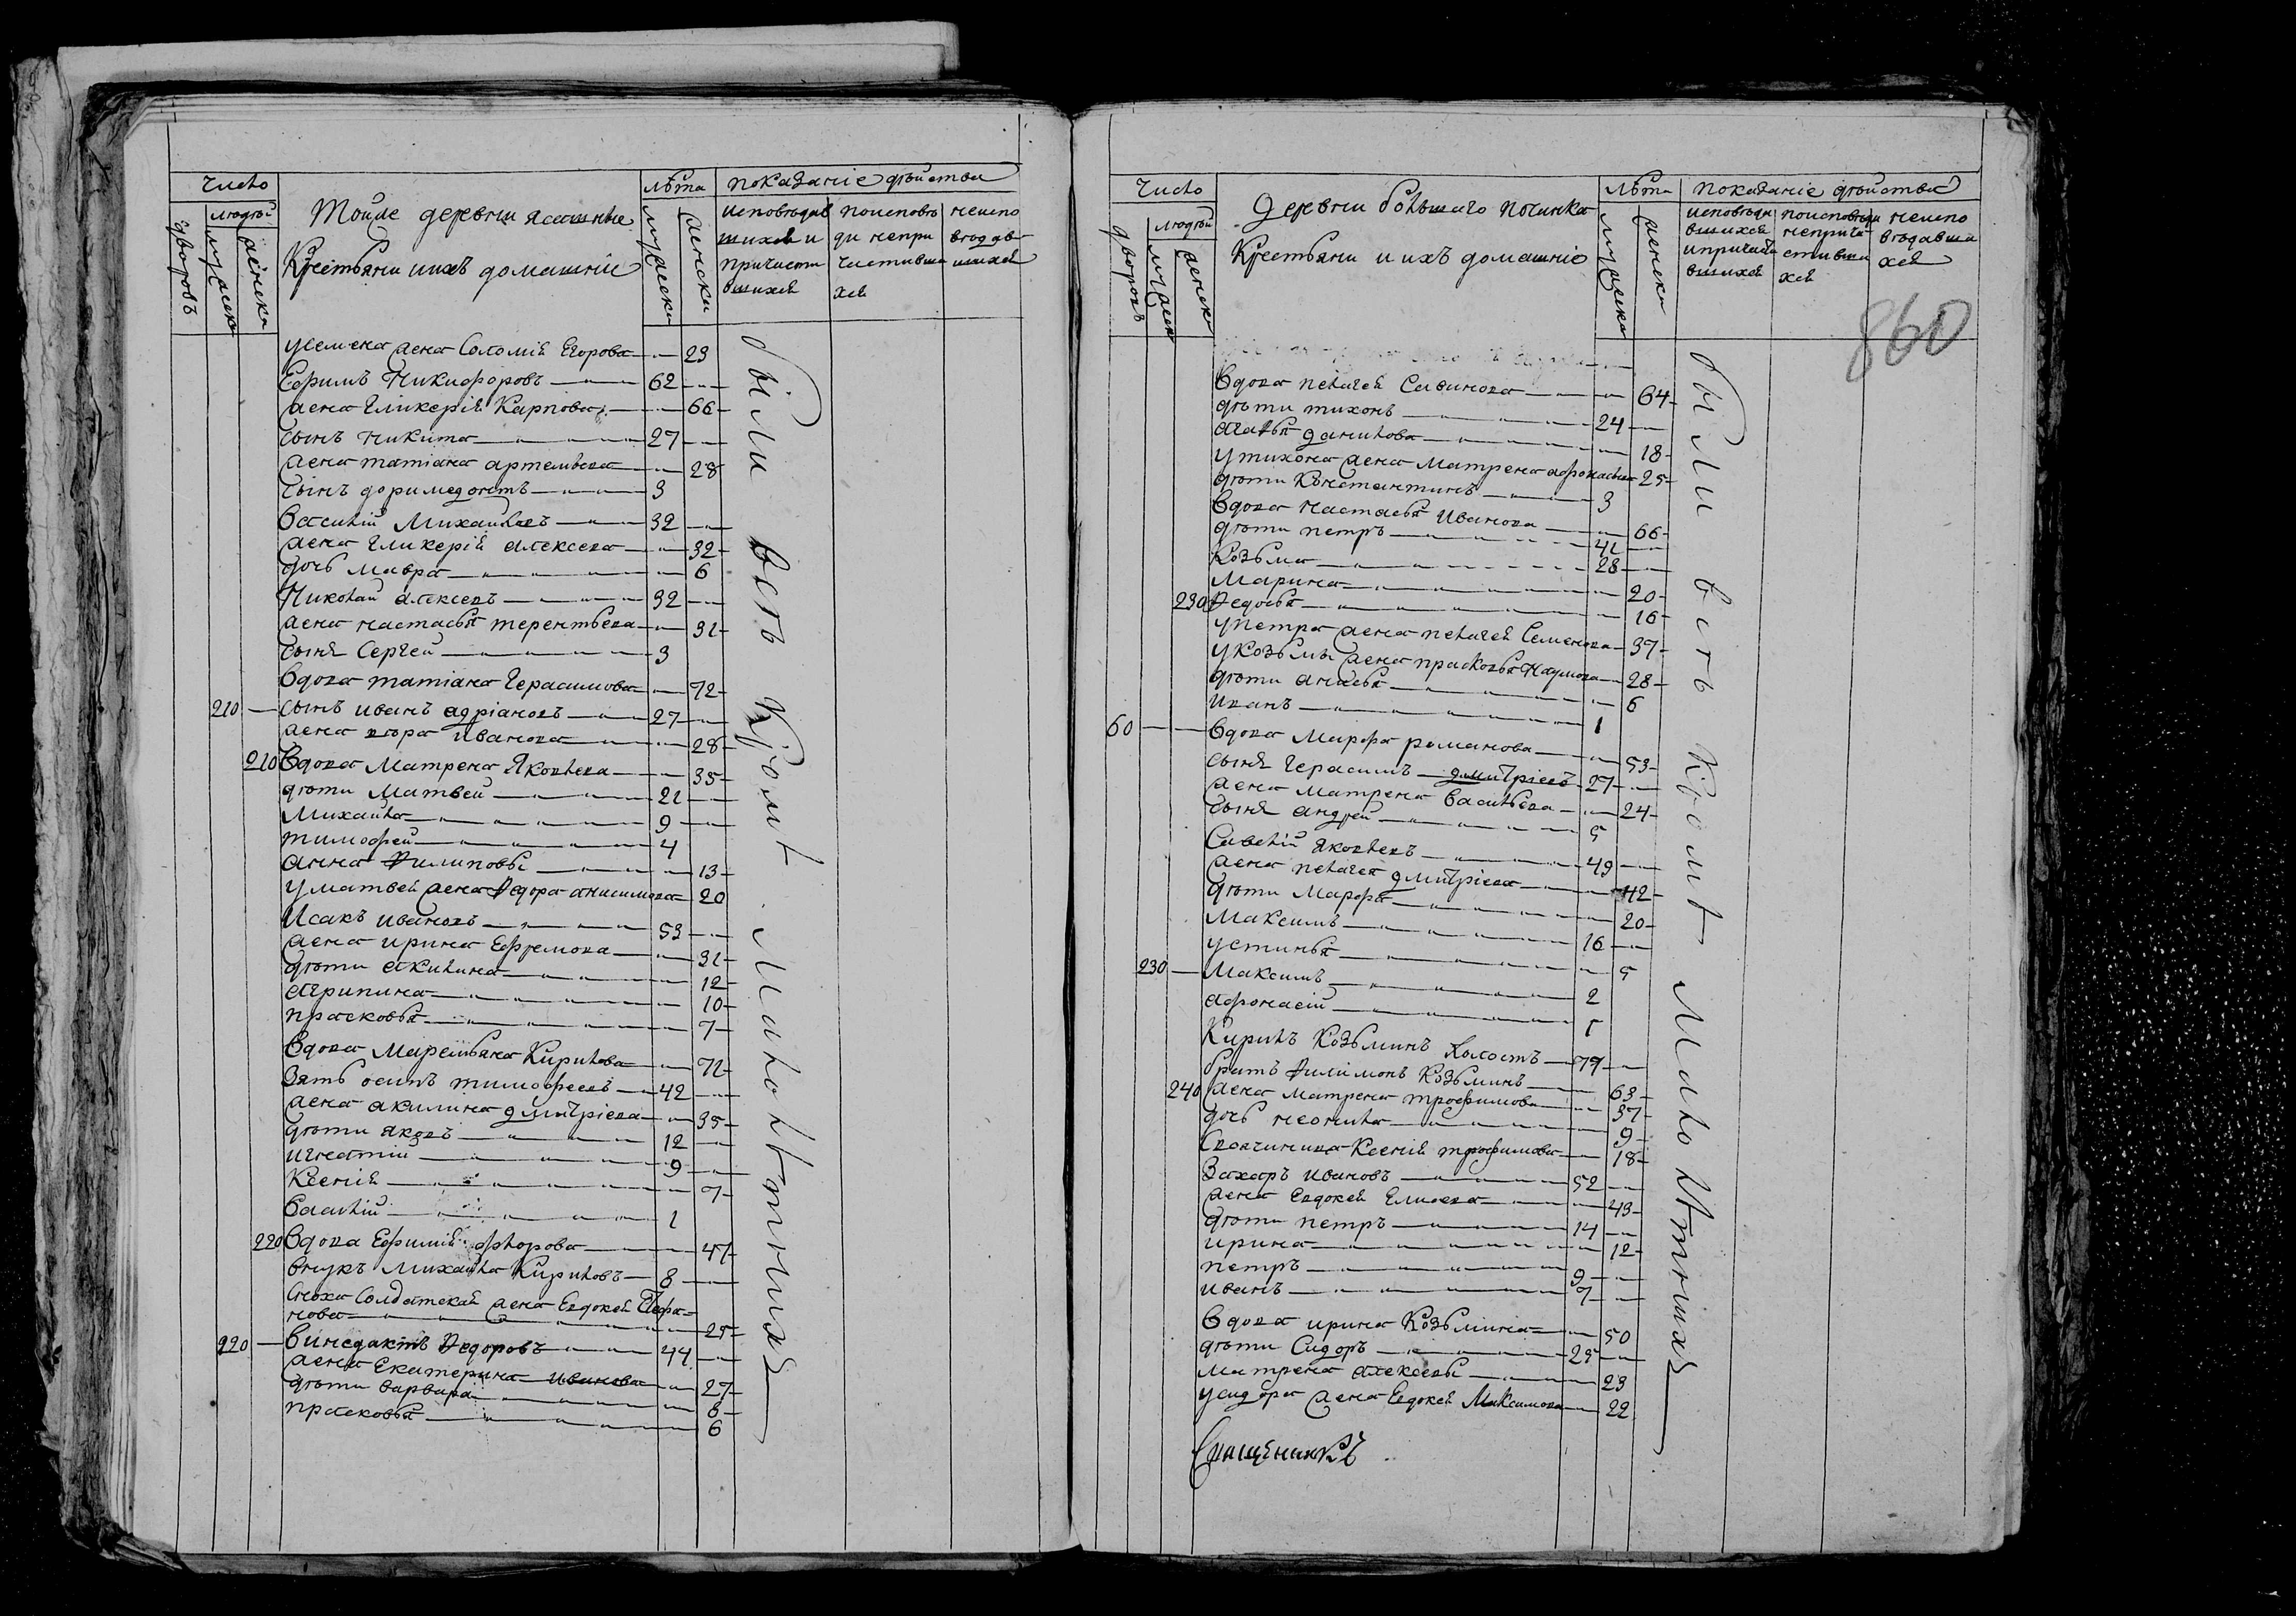 Число
людей
дворовъ
мужеска
женска
Тойже деревни ясашные
Крестьяни иихъ домашніе
лѣта
мужеска
женски
показаніе дѣйства
исповѣдав
шихся и
причасти
вшихся
поисповѣ
ди непри
частивши
хся
неиспо
вѣдав
шихся
уСемена жена Соломія Егорова 23
Ефримъ Никифоровъ 62
жена Гликерія Карпова 66
сынъ Никита 27
жена татіана артемьева 28
сынъ доримедонтъ 3
Василій Михайловъ 32
жена Гликерія алексева 32
дочь Мавра 6
Николай алексевъ 32
жена настасья терентьева 31
сынъ Сергей 3
Вдова татіана Герасимова 72
210 сынъ иванъ адріановъ 27
жена ивановa 28
210 Вдова Матрена Яковлева 35
дѣти Матвей 21
Михайла 9
тимофей 4
анна Филиповы 13
у матвея жена Ѳедора анисимова 20
Исакъ ивановъ 53
жена ирина Ефремова 31
дѣти акилина 12
агрипина 10
прасковья 7
Вдова Маремьяна Кирилова 71
Зять осипъ тимофеевъ 42
жена акилина дмитріева 35
дѣти яковъ 12
игнатій 9
Ксенія 7
Василій 1
220 Вдова Ефимія флорова 47
внукъ Михайла Кириловъ 8
Сноха Солдатская жена Евдокея
нова 25
220 Винедактъ Ѳедоровъ 44
жена Екатерина иванова 27
дѣти варвара 8
прасковья 6
были всѣ Кромѣ Малолѣтнихъ
Число
людей
дворовъ
мужеска
женска
Деревни большаго починка
Крестьяни и ихъ домашніе
лѣта
мужеска
женска
показаніе дѣйства
исповѣда
вшихся
ипричасти
вшихся
поисповѣди
неприча
стивши
хся
неиспо
вѣдавши
хся
860
Вдова пелагея Савинова 64
дѣти тихонъ 24
агафья данилова 18
утихона жена Матрена афонасьева 25
дѣти Констентинъ 3
Вдова настасья Иванова 66
дѣти петръ 41
Козьма 28
Марина 20
230 Ѳедосья 16
упетра жена пелагея Семенова 37
уКозьмы жена прасковья наумова 28
дѣти анасья 6
иванъ 1
60 Вдова Марфа романова 53
сынъ Герасимъ дмитріевъ 27
жена Матрена Васильева 24
сынъ андрей 5
Савелій яковлевъ 49
жена пелагея дмитріева 42
дѣти Марфа 20
Максимъ 16
устинья 5
230 Максимъ 2
афонасій 1
Кирилъ Козьминъ холостъ 77
братъ Филимонъ Козьминъ 63
240 жена матрена трофимова 37
дочь неонила 9
Свояченица Ксенія трофимова 18
Захаръ ивановъ 52
жена Евдокея Елисева 43
дѣти петръ 14
ирина 12
петръ 9
иванъ 7
Вдова ирина Козьмина 50
дѣти Сидоръ 25
матрена алексевы 23
усидора жена Евдокея Максимова 22
Священникъ
были всѣ Кромѣ Малолѣтнихъ